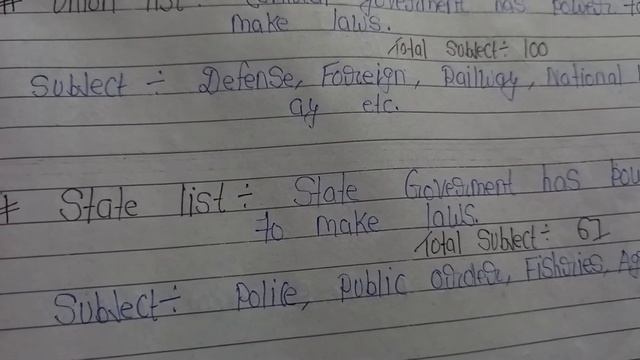 # Union list: Central Government has power to
make laws.
Total Subject÷ 100
Subject ÷ Defense, Foreign, Railway, National
ay etc.
# State list÷ State Government has pow
to make laws.
Total Subject÷ 61
Subject÷ Police, public order, Fisheries, Ag